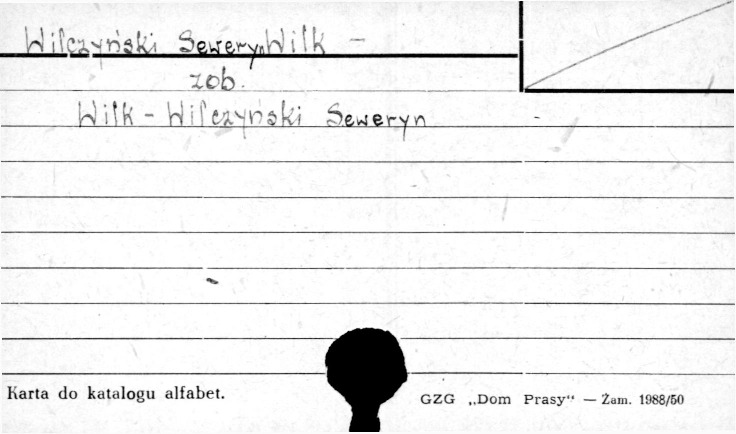 Wilczyński Seweryn Wilk –
zob.
Wilk – Wilczyński Seweryn
Karta do katalogu alfabet.
GZG „Dom Prasy“ — Żam. 1988/50